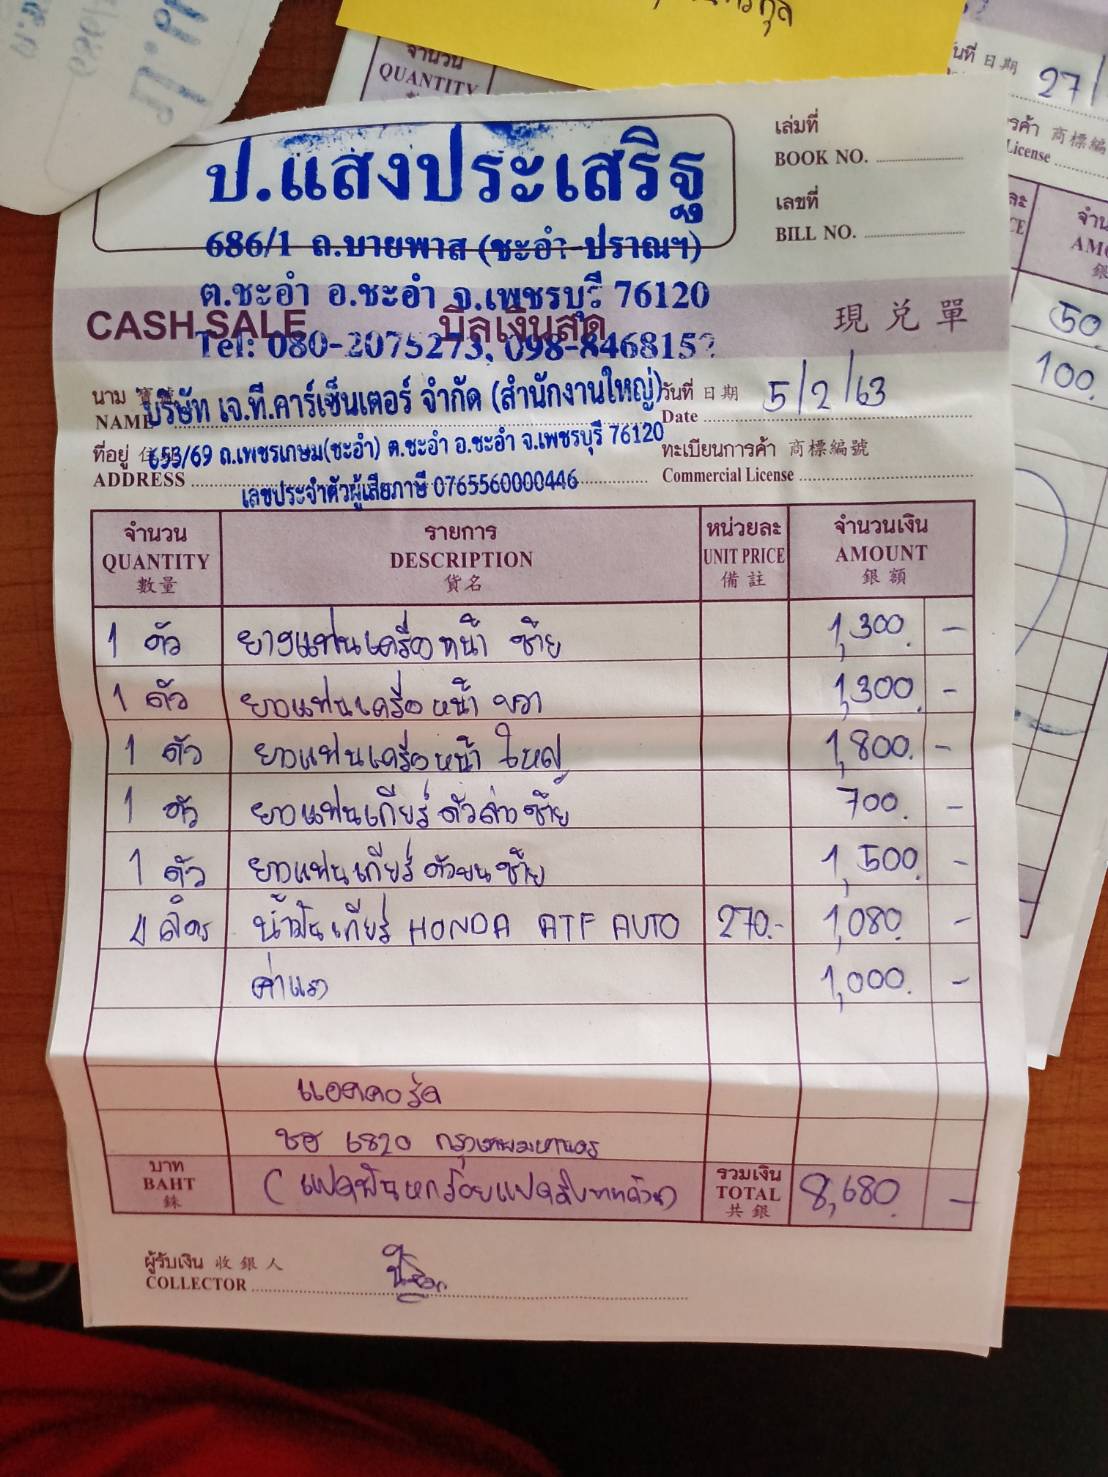 จำนวน
QUANTITY
ป.แสงประเสริฐ
686/1 ถ.บายพาส (ชะอำ-ปราณฯ)
ต.ชะอำ อ.ชะอำ จ.เพชรบุรี 76120
Tel: 080-2075273, 098-8468152
เล่มที่
BOOK NO.
เลขที่
BILL NO.
CASH SALE บิลเงินสด 現兌單
นาม
NAME
บริษัท เจ.ที.คาร์เซ็นเตอร์ จำกัด (สำนักงานใหญ่)
วันที่ 日期
Date 5/2/63
ที่อยู่
ADDRESS
653/69 ถ.เพชรเกษม(ชะอำ) ต.ชะอำ อ.ชะอำ จ.เพชรบุรี 76120
เลขประจำตัวผู้เสียภาษี 0765560000446
ทะเบียนการค้า 商標編號
Commercial License
จำนวน รายการ หน่วยละ จำนวนเงิน
QUANTITY DESCRIPTION UNIT PRICE AMOUNT
數量 貨名 備註 銀額
1 ตัว ยางแท่นเครื่อง หน้า ซ้าย 1,300.-
1 ตัว ยางแท่นเครื่อง หน้า ขวา 1,300.-
1 ตัว ยางแท่นเครื่อง หน้า ใหญ่ 1,800.-
1 ตัว ยางแท่นเกียร์ ตัวล่าง ซ้าย 700.-
1 ตัว ยางแท่นเกียร์ ตัวบน ซ้าย 1,500.-
4 ลิตร น้ำมันเกียร์ HONDA ATF AUTO 270.- 1,080.-
ค่าแรง 1,000.-
แอคคอร์ด
6820 กรุงเทพมหานคร
บาท
BAHT
銖
(แปดพันหกร้อยแปดสิบบาทถ้วน)
รวมเงิน
TOTAL
共銀
8,680.-
ผู้รับเงิน 收銀人
COLLECTOR
日期
27/
商標編
License
50.
100.